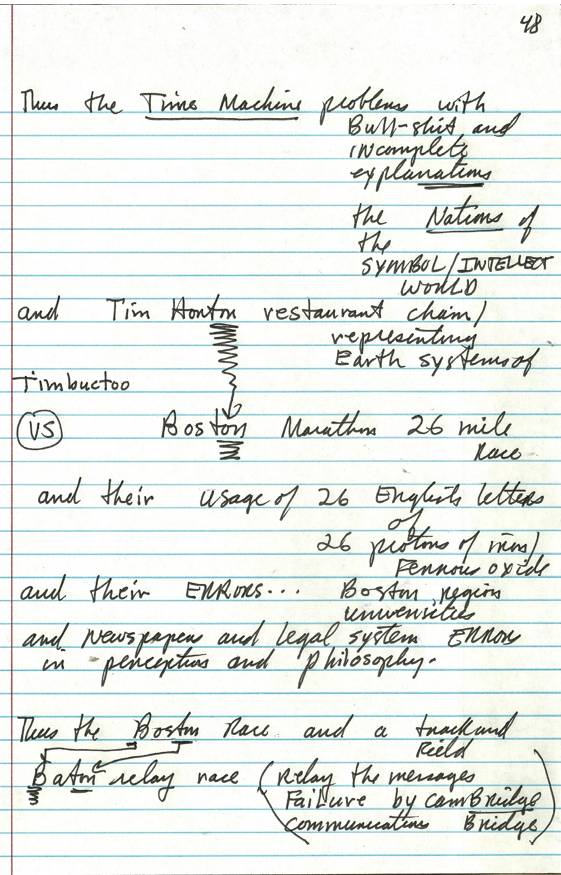 48
Thus the Time Machine problems with
Bull-shit and
incomplete
explanations
the Nations of
the
SYMBOL/INTELLECT
WORLD
and Tim Honton restaurant chain/
representing
Earth systems of
Timbuctoo
VS Boston Marathon 26 mile
Race
and their usage of 26 English letters
of
26 protons of iron/
Ferrous oxide
and their ERRORS... Boston region
universities
and Newspapers and legal system ERROR
in perception and philosophy.
Thus the Boston Race and a track and
Field
Baton relay race (Relay the messages
Failure by camBridge
communications Bridge)